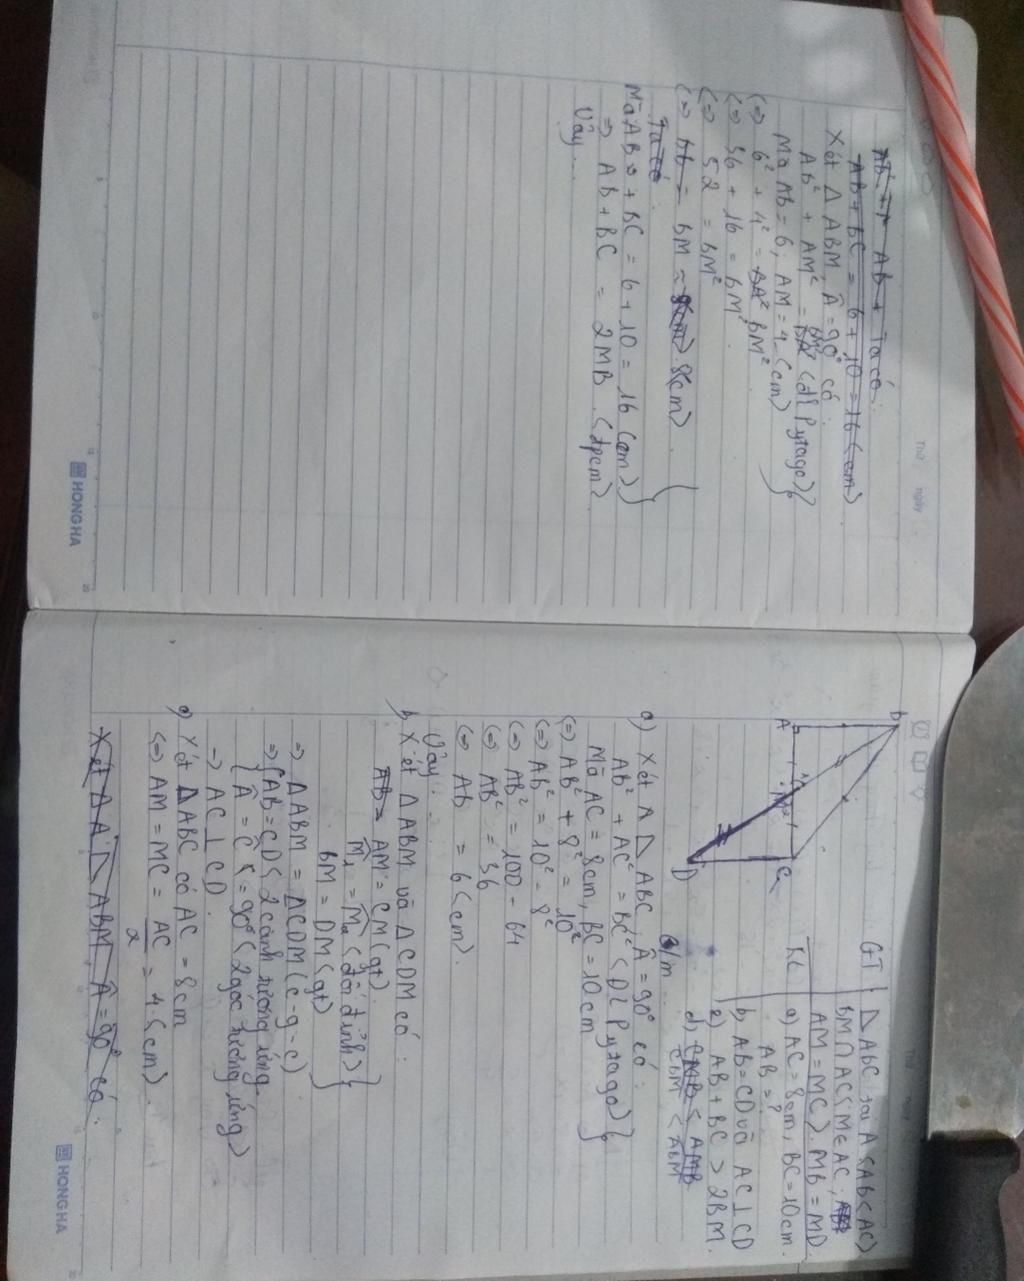 GT | △ABC tại A (AB<AC)
BM∩AC (M∈AC;
AM=MC). MB=MD
KL | a) AC=8cm, BC=10cm.
AB=?
b) AB=CD và AC⊥CD
c) AB+BC > 2BM.
d) C͟M͟B͟ < A͟M͟B͟
CBM < ABM
B
A
M
C
D
a) Xét △ABC, Â=90° có:
AB² + AC² = BC² (ĐL Pytago)}
Mà AC=8cm, BC=10cm
(=) AB² + 8² = 10²
(=) AB² = 10² - 8²
(=) AB² = 100 - 64
(=) AB² = 36
(=) AB = 6 (cm).
Vậy...
b) Xét △ABM và △CDM có:
AB= AM = CM (gt).
M̂₁ = M̂₂ (đối đỉnh)}
BM = DM (gt)
⇒ △ABM = △CDM (c-g-c)
⇒ {AB=CD (2 cạnh tương ứng.
{Â = Ĉ (=90° (2 góc tương ứng)
→ AC ⊥ CD.
c) Xét △ABC có AC = 8cm
(=) AM = MC = AC/2 = 4 (cm).
Xét △ ABM, Â=90° có:
AB + Ta có:
AB + BC = 6 + 10 = 16 (cm)
Xét △ ABM, Â=90° có:
AB² + AM² = BM² (đl Pytago)}
Mà AB=6; AM=4 (cm)
(=) 6² + 4² = BA² BM².
(=) 36 + 16 = BM².
(=) 52 = BM²
(=) AB = BM ≈ 8(cm) 8(cm).
Ta có:
Mà AB + BC = 6 + 10 = 16 (cm)}
⇒ AB + BC = 2MB. (đpcm)
Vậy...
Thứ ngày
HONG HA
HONG HA